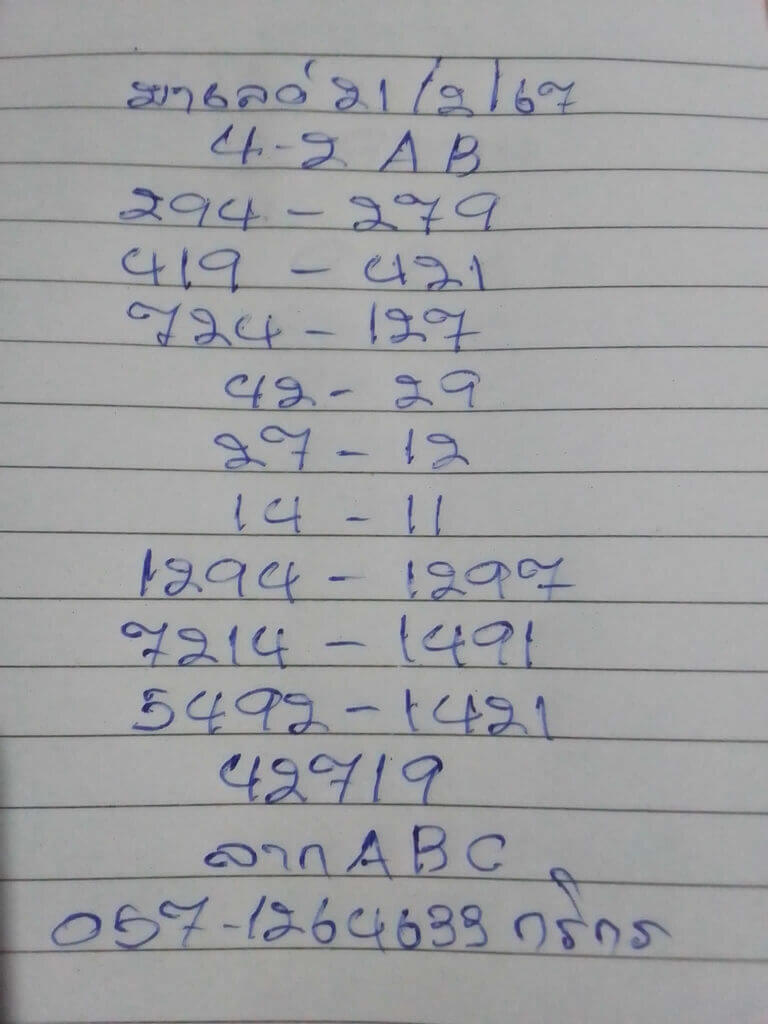 มาเลย์ 21/2/67
4-2 A B
294 - 279
419 - 421
724 - 127
42 - 29
27 - 12
14 - 11
1294 - 1297
7214 - 1491
5492 - 1421
42719
ลาก A B C
057-1264699